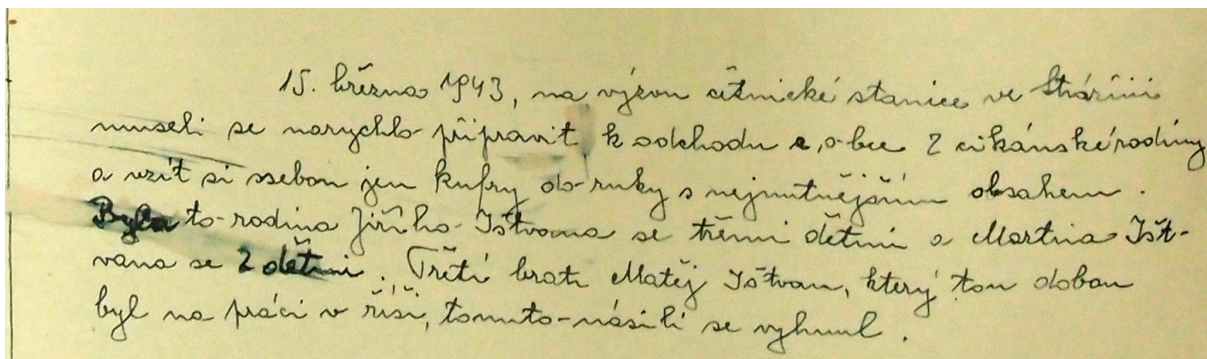 15. března 1943, na výzvu četnické stanice ve Strážnici
museli se narychlo připravit k odchodu z obce 2 cikánské rodiny
a vzít si ssebou jen kufry do ruky s nejnutnějším obsahem.
Byla to rodina Jiřího Ištvana se třemi dětmi a Martina Išt-
vana se 2 dětmi. Třetí bratr Matěj Ištvan, který tou dobou
byl na práci v říši, tomuto násilí se vyhnul.